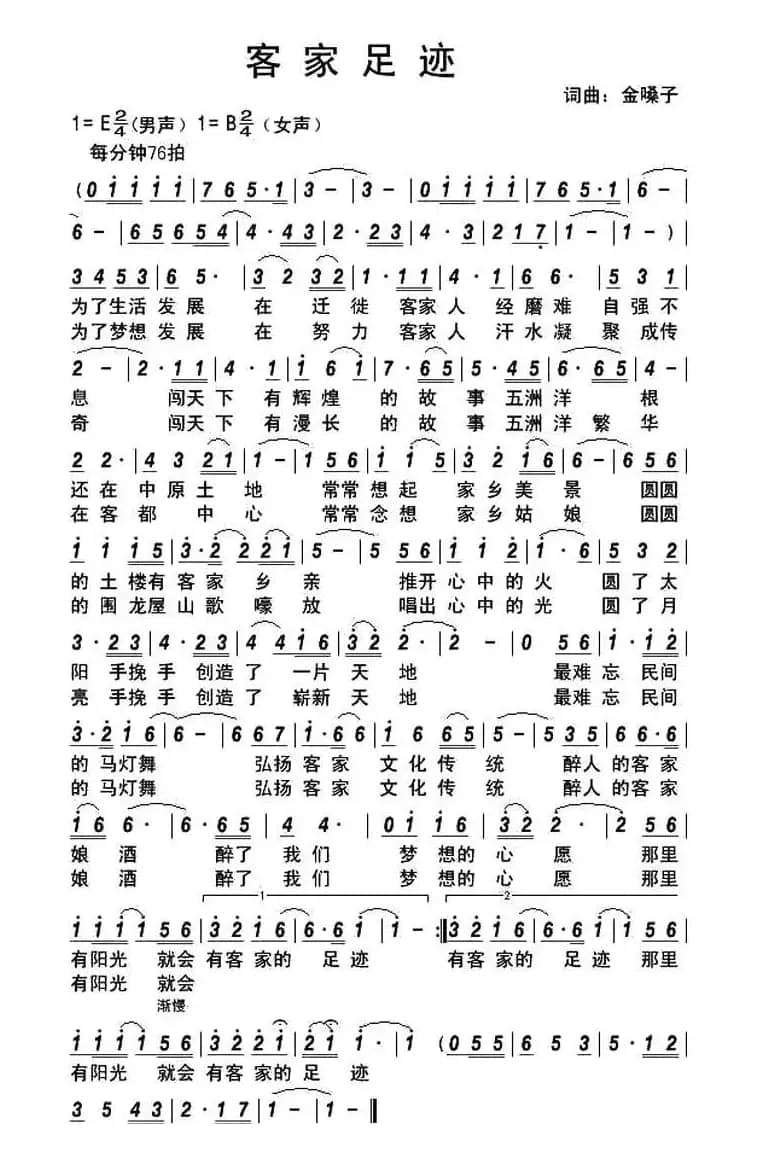 客家足迹
词曲：金嗓子
1=E 2/4（男声）1=B 2/4（女声）
每分钟76拍
(0 1 1 1 1 | 7 6 5·1 | 3 - | 3 - | 0 1 1 1 1 | 7 6 5·1 | 6 - |
6 - | 6 5 6 5 5 4 | 4·4 3 | 2·2 3 | 4·3 | 2 1 7 | 1 - | 1 - )
3 4 5 3 | 6 5· | 3 2 3 2 | 1·1 1 | 4·1 | 6 6· | 5 3 1
为了生活 发展 在 迁徙 客家人 经磨难 自强不
为了梦想 发展 在 努力 客家人 汗水凝 聚成传
2 - | 2·1 1 | 4·1 | 1 6 1 | 7·6 5 | 5·4 5 | 6·6 5 | 4 -
息 闯天下 有辉煌 的故事 五洲洋 根
奇 闯天下 有漫长 的故事 五洲洋 繁华
2 2· | 4 3 2 1 | 1 - | 1 5 6 | 1 1 5 | 3 2 1 6 | 6 - | 6 5 6
还在 中原土地 常常想起 家乡美景 圆圆
在客都 中心 常常念想 家乡姑娘 圆圆
1 1 1 5 | 3·2 2 2 1 | 5 - | 5 5 6 | 1 1 2 | 1·6 | 5 3 2
的土楼有客家乡亲 推开心中的火 圆了太
的围龙屋山歌嚎放 唱出心中的光 圆了月
3·2 3 | 4·2 3 | 4 4 1 6 | 3 2 2· | 2 - | 0 5 6 | 1·1 2
阳 手挽手 创造了 一片天地 最难忘 民间
亮 手挽手 创造了 崭新天地 最难忘 民间
3·2 1 6 | 6 - | 6 6 7 | 1·6 6 | 1 6 6 5 | 5 - | 5 3 5 | 6 6·6
的马灯舞 弘扬客家 文化传统 醉人的客家
的马灯舞 弘扬客家 文化传统 醉人的客家
1 6 6· | 6·6 5 | 4 4· | 0 1 1 6 | 3 2 2· | 2 5 6
娘酒 醉了我们 梦想的心愿 那里
娘酒 醉了我们 梦想的心愿 那里
1 2
1 1 1 1 5 6 | 3 2 1 6 | 6·6 1 | 1 - :‖ 3 2 1 6 | 6·6 1 | 1 5 6
有阳光 就会 有客家的 足迹 有客家的 足迹 那里
有阳光 就会
渐慢
1 1 1 1 5 6 | 3 2 2 1 | 2 1 1· | 1 ( 0 5 5 | 6 5 3 | 5·5 5
有阳光 就会 有客家的足 迹
3 5 4 3 | 2·1 7 | 1 - | 1 - ‖